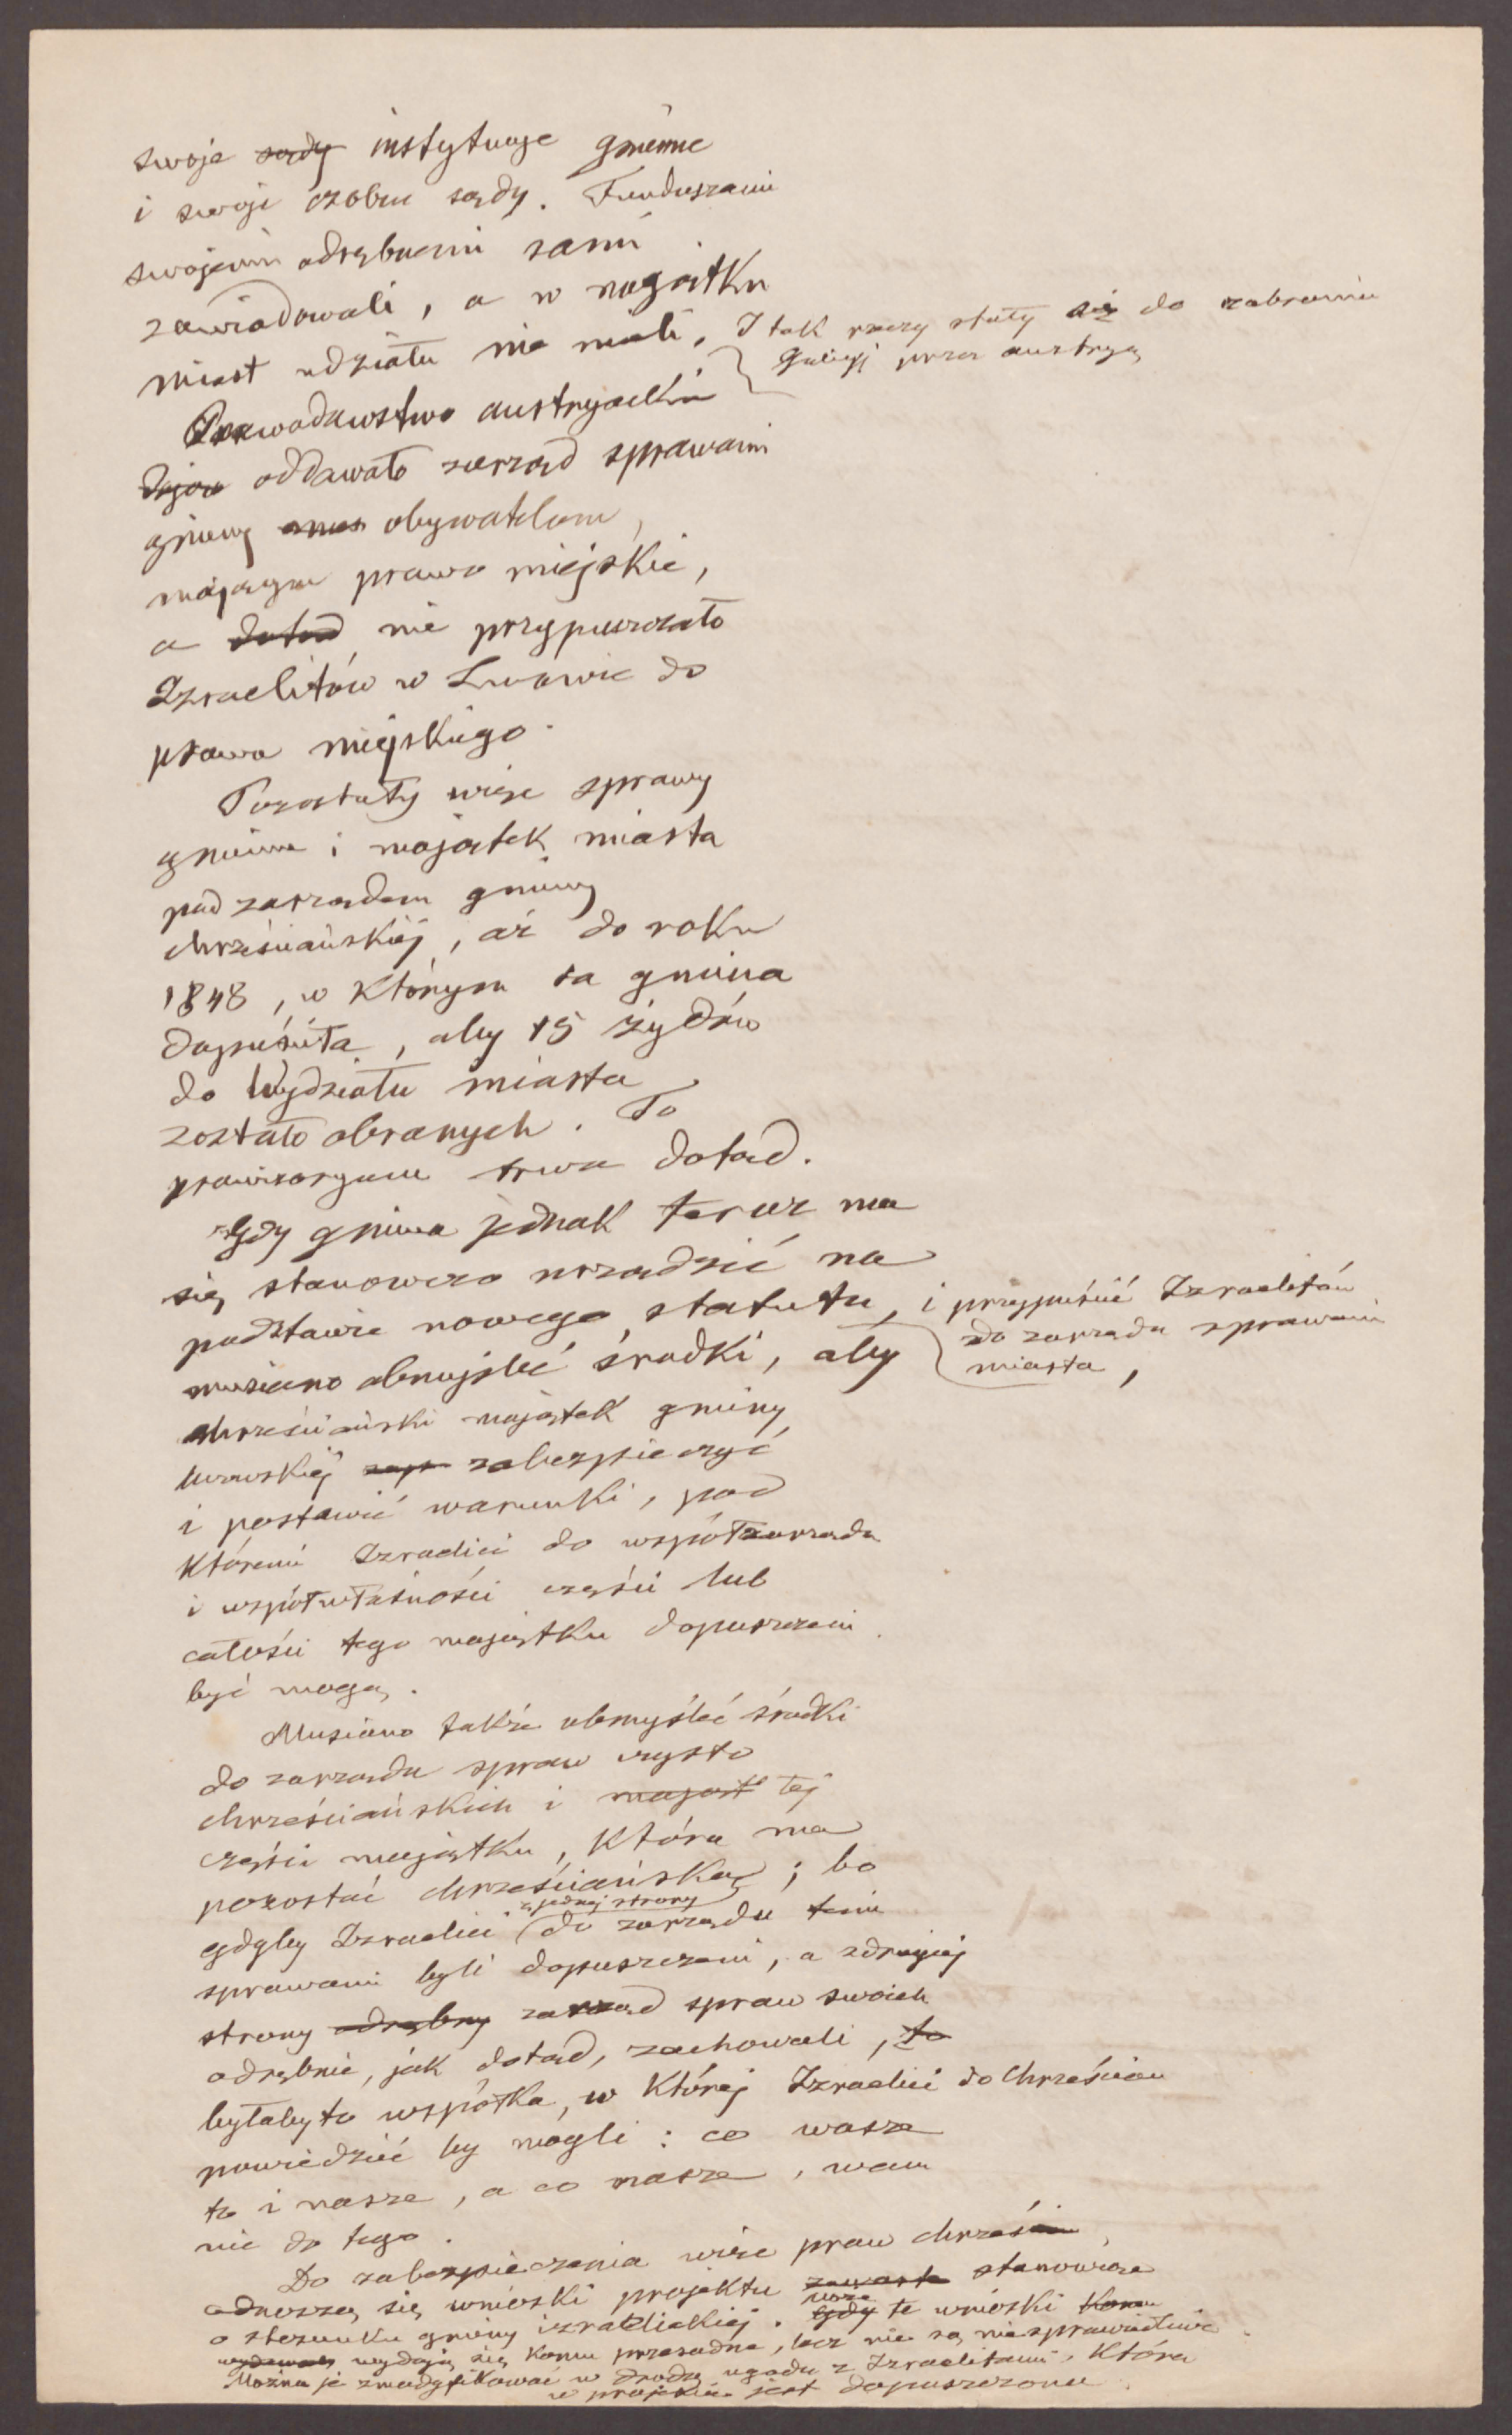 swoje sądy instytucje gminne
i swoje osobne sądy. Funduszami
swojemi odrębnemi sami
zawiadowali, a w majątku
miast udziału nie mieli. I tak rzeczy stały aż do zabrania
Galicyj przez Austryą
Prawodawstwo austryackie
oddawało zarząd sprawami
gminy obywatelom,
mającym prawo miejskie,
a dotąd nie przypuszczało
Izraelitów w Lwowie do
prawa miejskiego.
Pozostały więc sprawy
gminne i majątek miasta
pod zarządem gminy
chrześciańskiej, aż do roku
1848, w którym ta gmina
dopuściła, aby 15 żydów
do Wydziału miasta
zostało obranych. To
prowizoryum trwa dotąd.
Gdy gmina jednak teraz ma
się stanowczo urządzić na
podstawie nowego statutu, i przypuścić Izraelitów
do zarządu sprawami
miasta,
musiano obmyśleć środki, aby
chrześciański majątek gminy
lwowskiej zabezpieczyć
i postawić warunki, pod
któremi Izraelici do współzarządu
i współwłasności części lub
całości tego majątku dopuszczeni
być mogą.
Musiano także obmyśleć środki
do zarządu spraw czysto
chrześciańskich i mająt tej
części majątku, która ma
pozostać chrześciańską; bo
z jednej strony
gdyby Izraelici do zarządu temi
sprawami byli dopuszczeni, a z drugiej
strony odrębny zarząd spraw swoich
odrębnie, jak dotąd, zachowali, to
byłaby to współka, w której Izraelici do Chrześcian
powiedzieć by mogli: co wasze
to i nasze, a co nasze, wam
nic do tego.
Do zabezpieczenia więc praw chrześcian
odnoszą się wnioski projektu zawarte stanowcze
o stosunku gminy izraelickiej. Może Gdy te wnioski komu
wydawały wydają się komu przesadne, lecz nie są niesprawiedliwe.
Można je zmodyfikować w drodze ugody z Izraelitami, która
w projekcie jest dopuszczona.